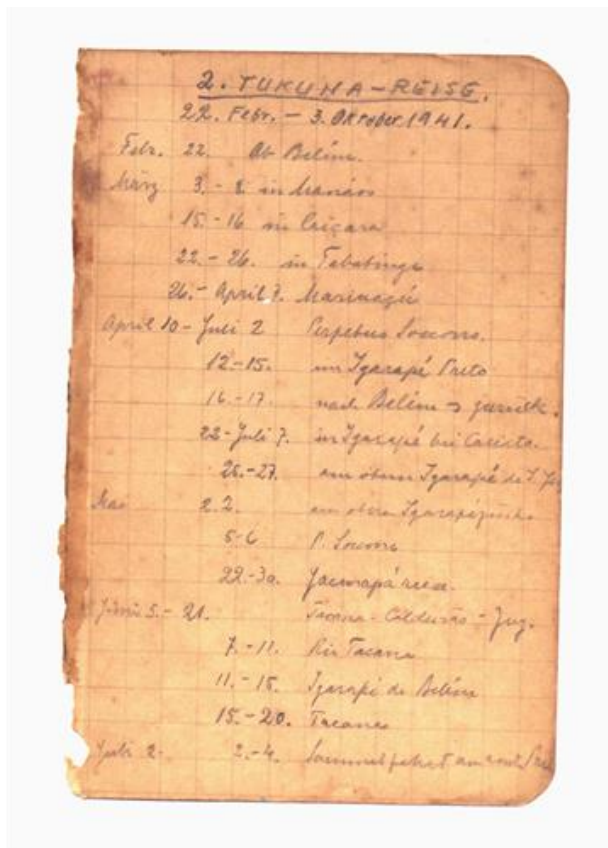 2. TUKUNA-REISE.
22. Febr. - 3. Oktober 1941.
Febr. 22. Ab Belém.
März 3. - 8 in Manáos
15. - 16 in Caiçara
22. - 26. in Tabatinga
26. - April 7. Mariuaçú
April 10 - Juli 2 Perpetuo Socorro.
12.-15. im Igarapé Preto
16.-17. nach Belém → zurück.
22-Juli 7. in Igarapé bei
26.-27. am obern Igarapé de
Mai 2. am obern
5-6 P. Socorro
22.-30. Jacurapá
Juni 5. - 21. Tacana -
7.-11. Rio Tacana
11.-15. Igarapé de Belém
15.-20. Tacana
Juli 2. 2.-4. am